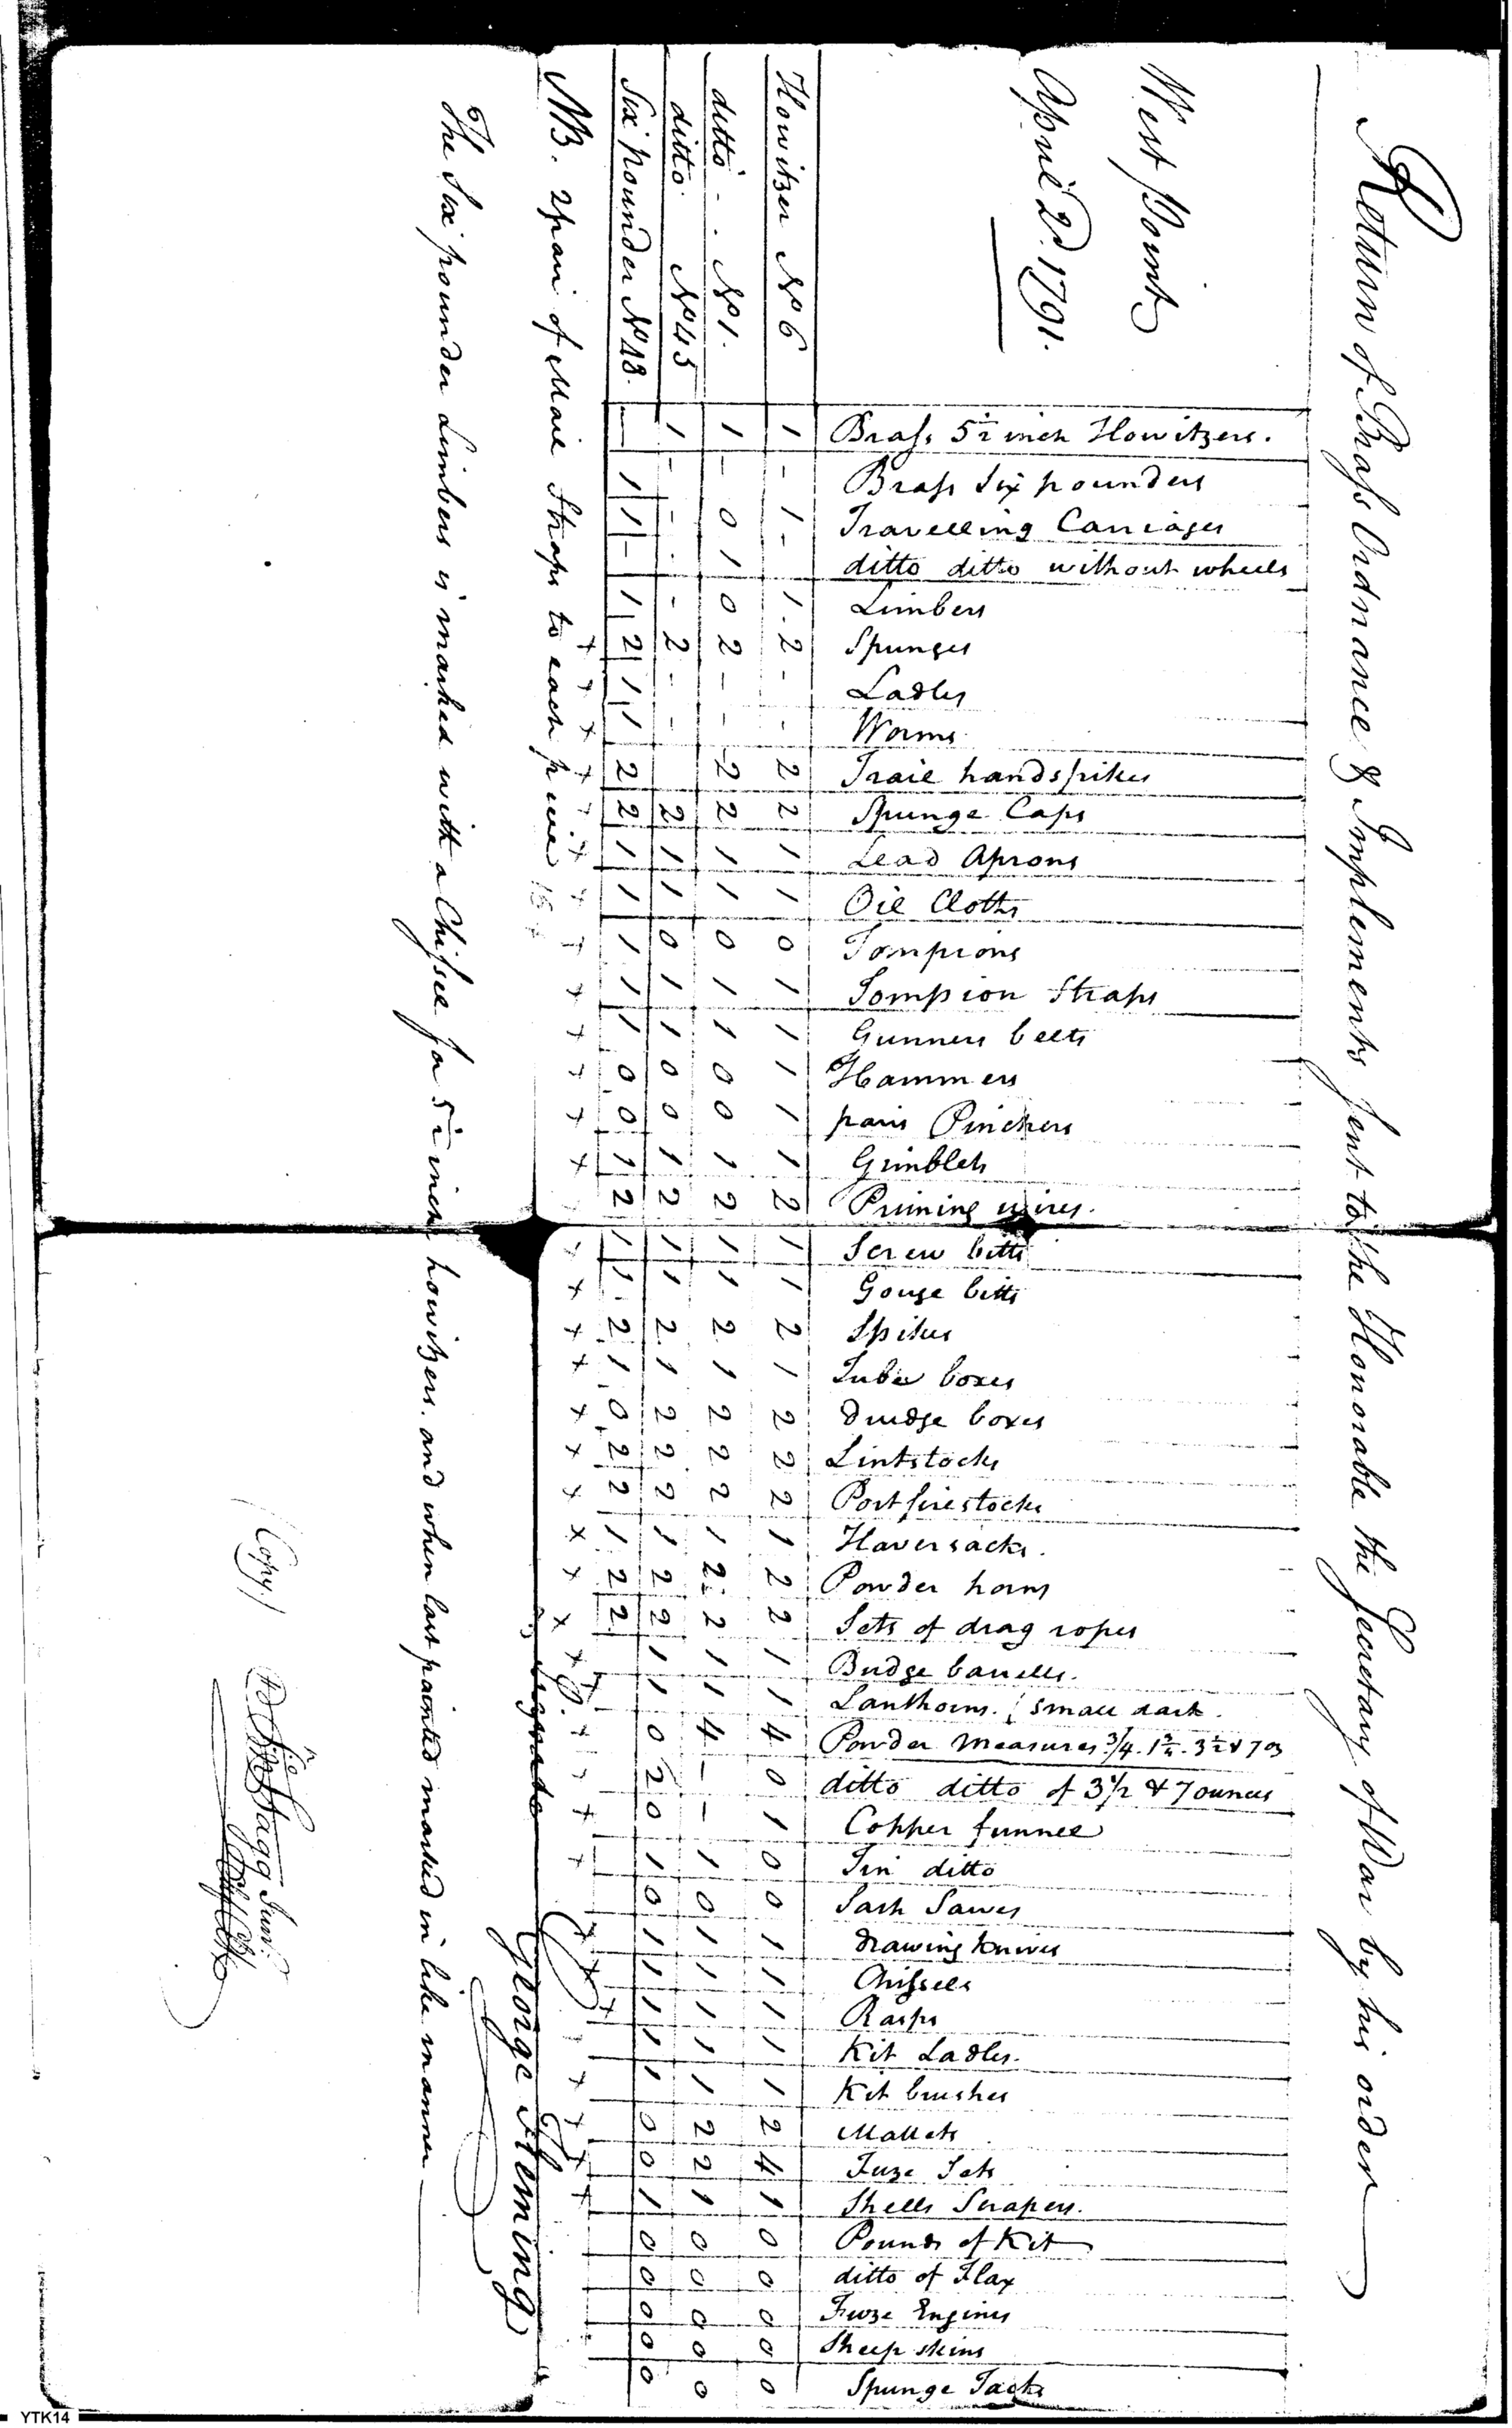 Return of Brass Ordnance & Implements sent to the Honorable the Secretary of War by his order
West Point
April 2d. 1791.
Brass 5½ inch Howitzers.
Brass Six pounders
Travelling Carriages
ditto ditto without wheels
Limbers
Spunges
Ladles
Worms
Trail handspikes
Spunge Caps
Lead Aprons
Oil Cloths
Tompions
Tompion Straps
Gunners belts
Hammers
pairs Pinchers
Gimblets
Priming wires.
Screw bitts
Gouge bitts
Spikes
Tube boxes
drudge boxes
Lintstocks
Portfirestocks
Haversacks.
Powder horns
Sets of drag ropes
Budge barrells.
Lanthorns. small dark.
Powder Measures 3/4. 1¾. 3½ & 7 oz
ditto ditto of 3½ & 7 ounces
Copper funnel
Tin ditto
Sash Sawes
drawing knives
Chissels
Rasps
Kit Ladles.
Kit brushes
Mallets
Fuze Sets
Shells Scrapers.
Pounds of Kit
ditto of Flax
Fuze Engines
Sheep skins
Spunge Tacks
Howitzer No 6 1 - 1 - 1 2 - - 2 2 1 1 0 1 1 1 1 1 2 1 1 2 1 2 2 2 1 2 2 1 1 4 0 1 0 0 1 1 1 1 1 2 4 1 0 0 0 0 0
ditto - - No 1. 1 - 0 1 0 2 - - 2 2 1 1 0 1 1 0 0 1 2 1 1 2 1 2 2 2 1 2 2 1 1 4 - - 1 0 1 1 1 1 1 2 2 1 0 0 0 0 0
ditto No 45 1 - - - - 2 - - 2 1 1 0 1 1 0 0 1 2 1 1 2 1 2 2 2 1 2 2 1 1 0 2 0 1 0 1 1 1 1 1 0 0 1 0 0 0 0 0
Six pounder No 18. - 1 1 - 1 2 1 1 2 2 1 1 1 1 1 0 0 1 2 1 1 2 1 0 2 2 1 2 2
NB. 2 pair of Mail Straps to each piece
George Fleming
The Six pounder Limbers is marked with a Chissel for 5½ inch howitzers. and when last painted marked in like manner
(Copy)
Jno Stagg Junr.
YTK14